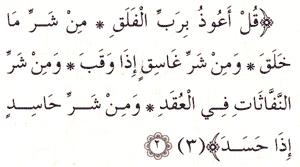 ﴿قُلْ أَعُوذُ بِرَبِّ الْفَلَقِ * مِنْ شَرِّ مَا
خَلَقَ * وَمِنْ شَرِّ غَاسِقٍ إِذَا وَقَبَ * وَمِنْ شَرِّ
النَّفَّاثَاتِ فِي الْعُقَدِ * وَمِنْ شَرِّ حَاسِدٍ
إِذَا حَسَدَ﴾ (٣) ٢